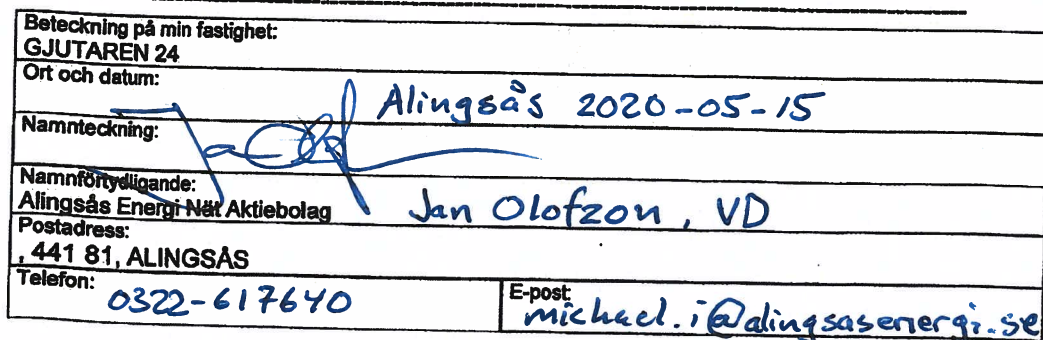 Beteckning på min fastighet:
GJUTAREN 24
Ort och datum:
Alingsås 2020-05-15
Namnteckning:
Namnförtydligande:
Alingsås Energi Nät Aktiebolag Jan Olofzon, VD
Postadress:
, 441 81, ALINGSÅS
Telefon: 0322-617640
E-post: michael.i@alingsasenergi.se